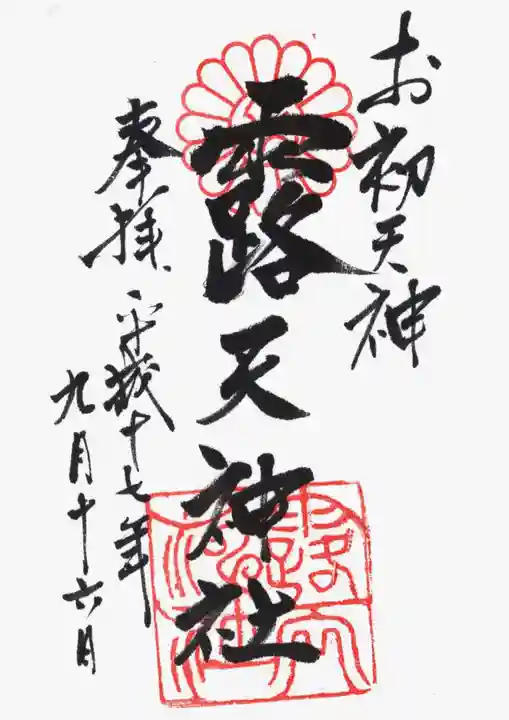 お初天神
露天神社
奉拝 平成十七年
九月十六月